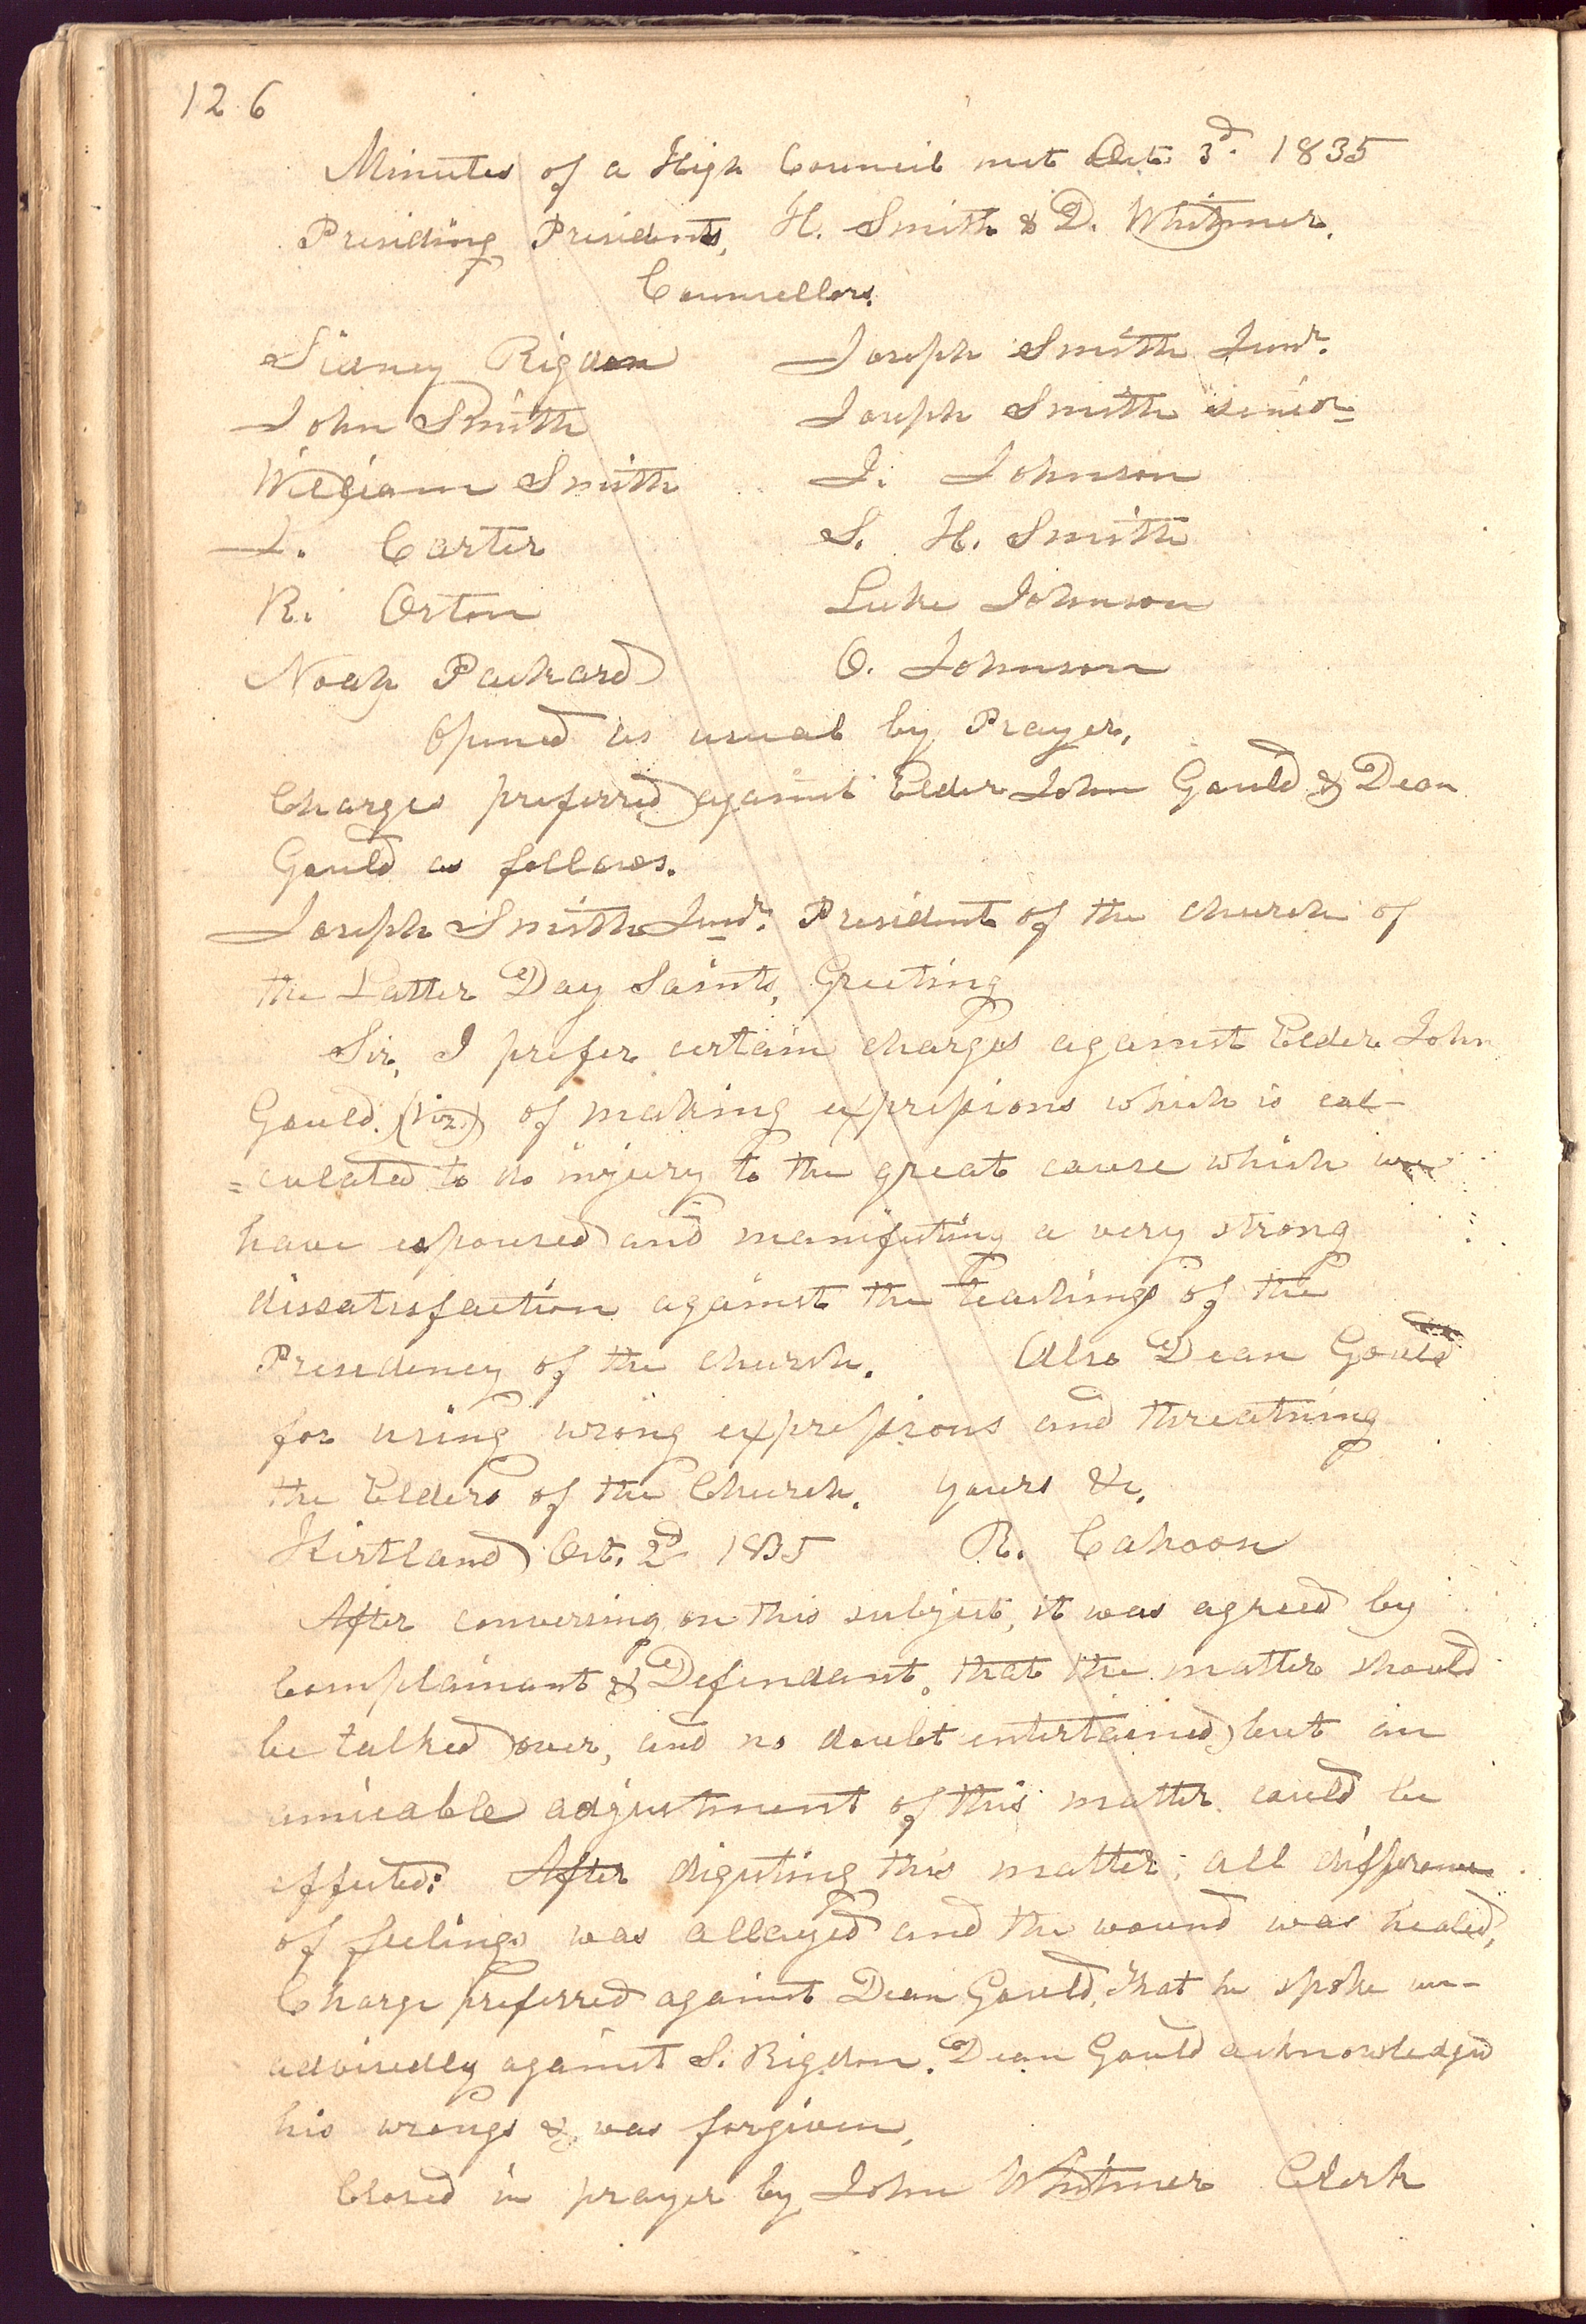 126
Minutes of a High Council met Oct. 3d. 1835
Presiding Presidents, H. Smith & D. Whitmer.
Counsellors.
Sidney Rigdon Joseph Smith Junr.
John Smith Joseph Smith senior
William Smith J. Johnson
J. Carter S. H. Smith
R. Orton Luke Johnson
Noah Packard O. Johnson
Opened as usual by Prayer,
Charges preferred against Elder John Gould & Dean
Gould as follows.
Joseph Smith Junr. President of the church of
the Latter Day Saints, Greeting
Sir, I prefer certain charges against Elder John
Gould. (viz) of making expressions which is cal-
=culated to do injury to the great cause which we
have espoused and manifesting a very strong
dissatisfaction against the teachings of the
Presidency of the church. Also Dean Gould
for using wrong expressions and threatning
the Elders of the Church. Yours &c.
Kirtland Oct. 2d 1835 R. Cahoon
After conversing on this subject, it was agreed by
Complainant & Defendant. that the matter should
be talked over, and no doubt entertained but an
amicable adjustment of this matter could be
effected: After digesting this matter, all difference
of feelings was allayed and the wound was healed,
Charge preferred against Dean Gould, that he spoke un-
advisedly against S. Rigdon. Dean Gould acknowledged
his wrongs & was forgiven,
Closed in prayer by John Whitmer Clerk